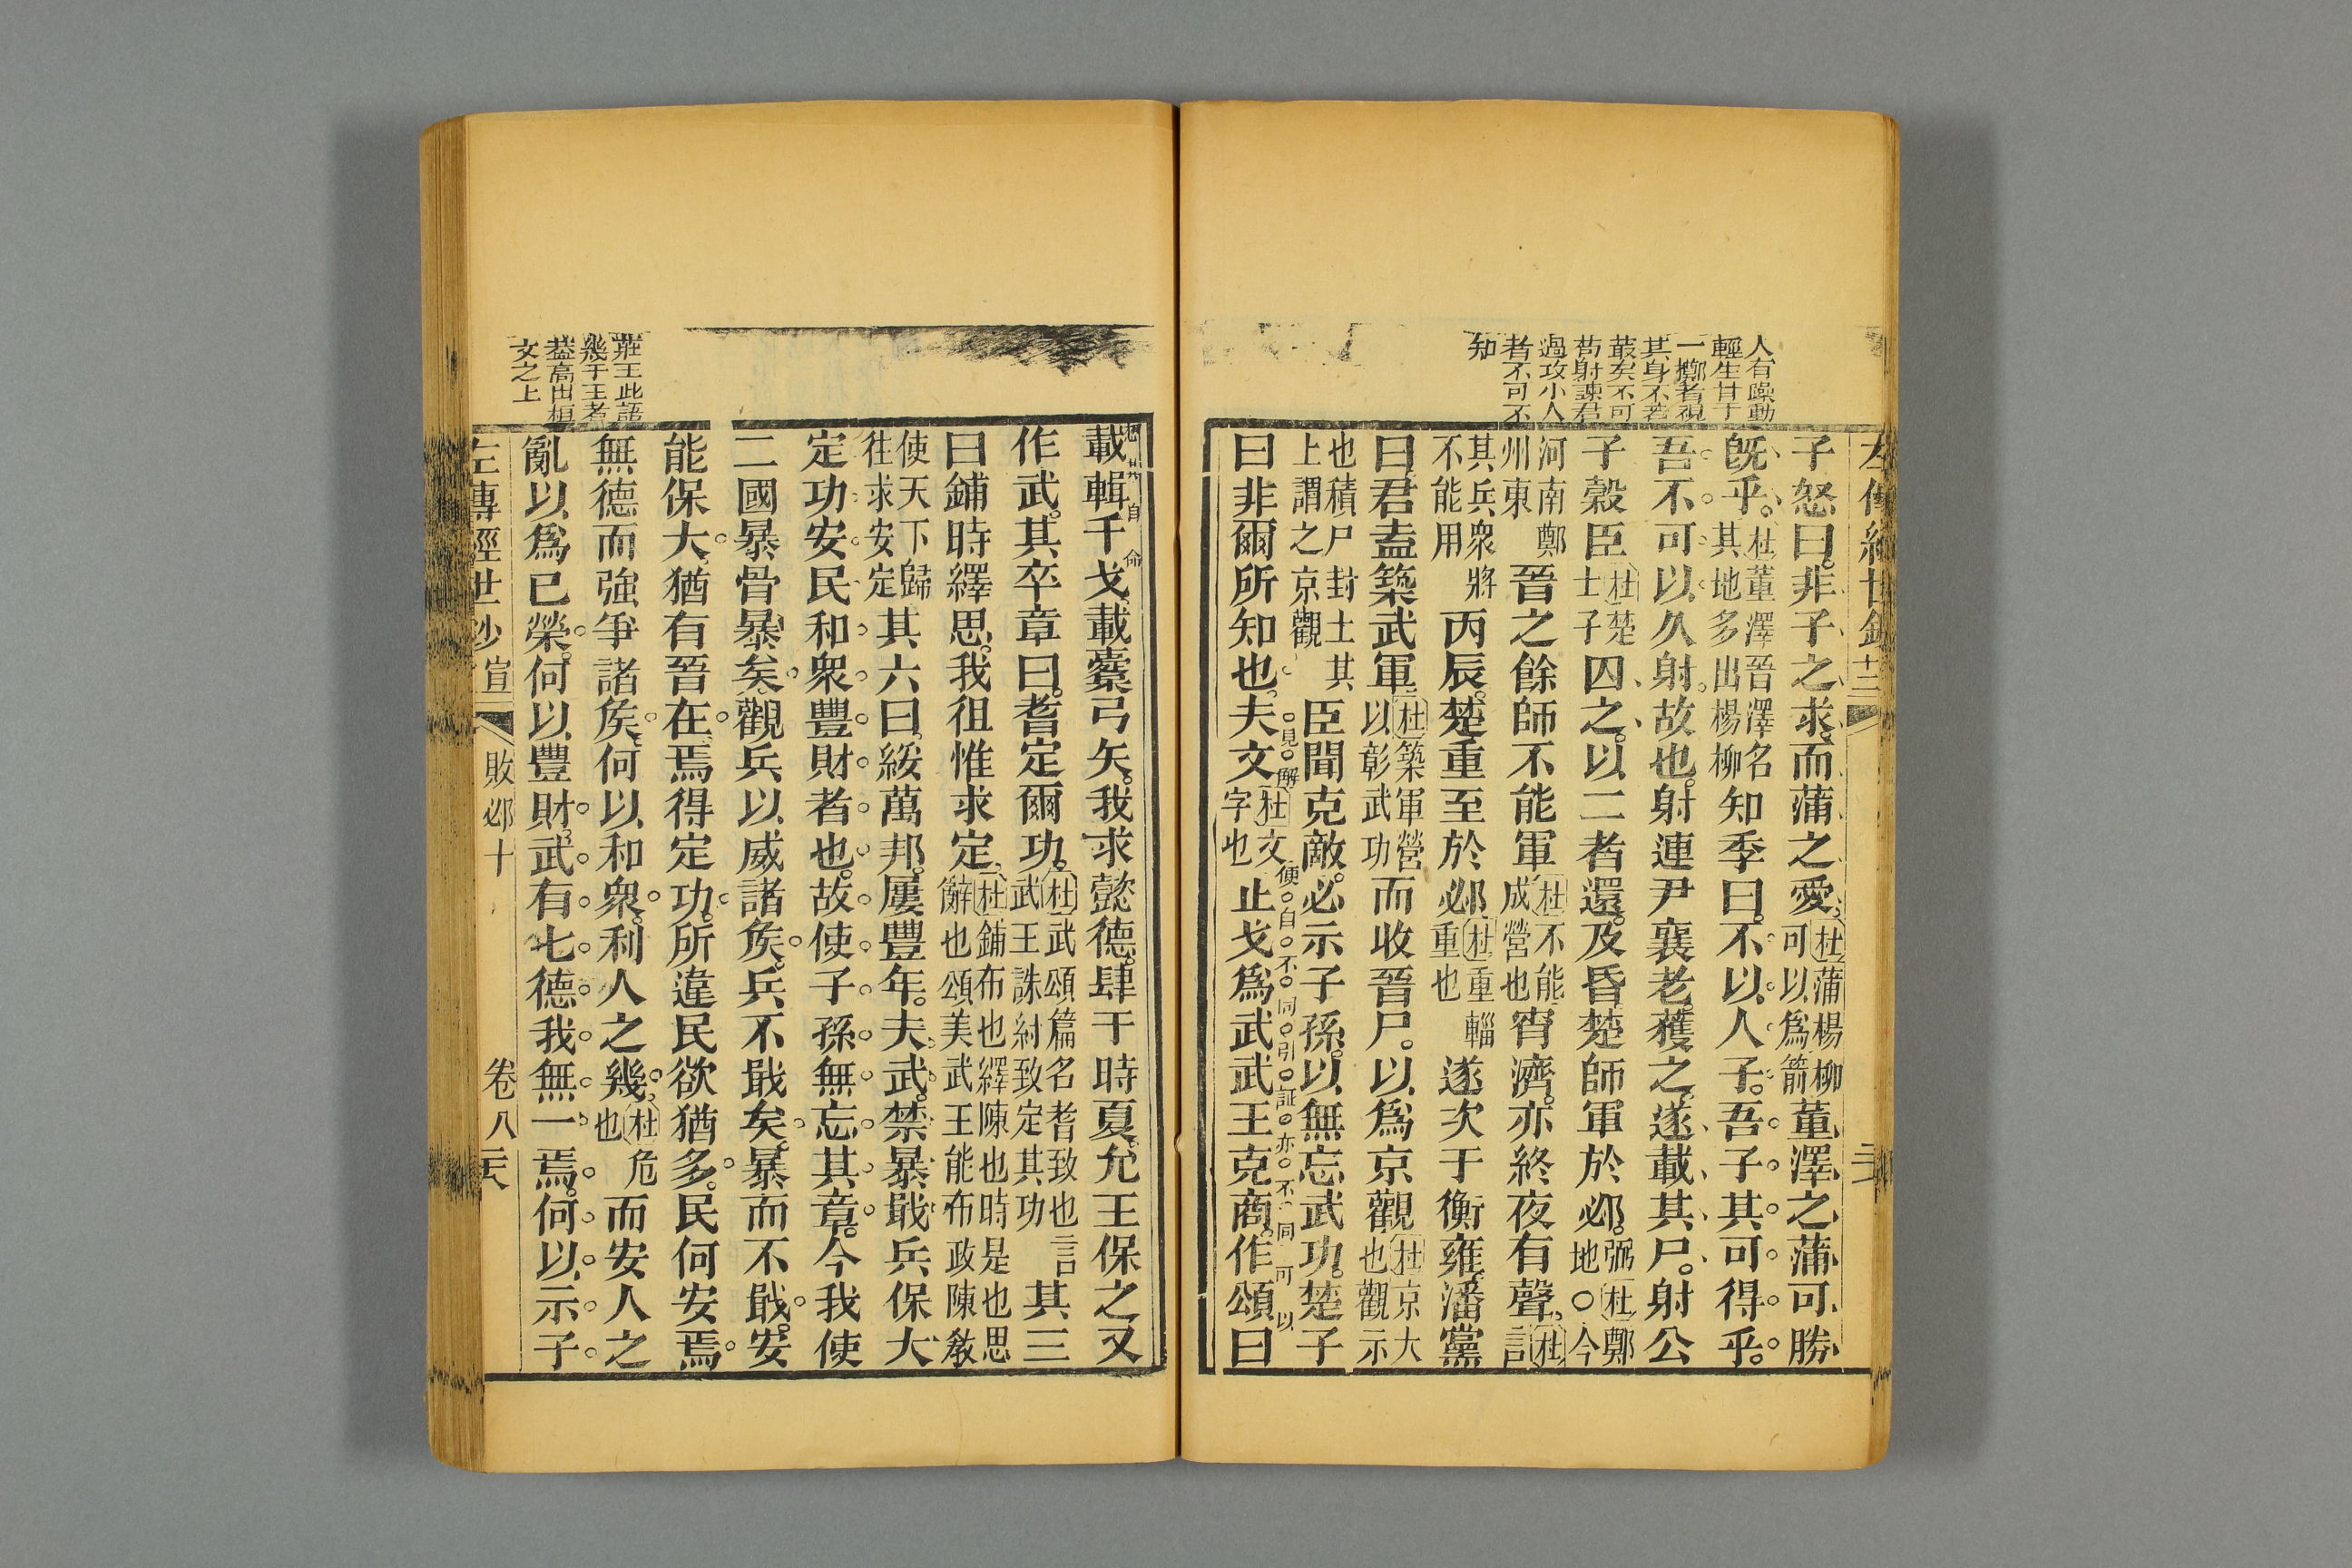 人有躁動
輕生甘于
一擲者視
其身不若
叢矣不可
苟射諫君
過攻小人
者不可不
知
子怒曰。非子之求。而蒲之愛。
杜蒲楊柳
可以爲箭
董澤之蒲可勝
旣乎。
杜董澤晉澤名
其地多出楊柳
知季曰。不以人子。吾子其可得乎。
吾不可以久射故也。射連尹襄老。獲之。遂載其尸。射公
子穀臣
杜楚
士子
囚之。以二者還。及昏楚師軍於邲。
杜鄭
地○今
河南鄭
州東
晉之餘師不能軍
杜不能
成營也
宵濟。亦終夜有聲。
杜
言
其兵衆將
不能用
丙辰。楚重至於邲
杜重輜
重也
遂次于衡雍。潘黨
曰。君盍築武軍。
杜築軍營
以彰武功
而收晉尸。以爲京觀
杜京大
也觀示
也積尸封土其
上謂之京觀
臣聞克敵。必示子孫。以無忘武功。楚子
曰非爾所知也。夫文
杜文
字也
止戈爲武武王克商。作頌曰
見解
便自不同引証亦不同可以
載輯干戈。載櫜弓矢。我求懿德。肆于時夏。允王保之又
作武。其卒章曰。耆定爾功。
杜武頌篇名耆致也言
武王誅紂致定其功
其三
曰鋪時繹思。我徂惟求定。
杜鋪布也繹陳也時是也思
辭也頌美武王能布政陳敎
使天下歸
往求安定
其六曰。綏萬邦。屢豐年。夫武。禁暴戢兵保大
定功安民和衆豐財者也。故使子孫無忘其章。今我使
二國暴骨暴矣。觀兵以威諸矦。兵不戢矣。暴而不戢。安
能保大。猶有晉在。焉得定功。所違民欲猶多。民何安焉。
無德而強爭諸矦。何以和衆。利人之幾。
杜危
也
而安人之
亂以爲已榮。何以豐財。武有七德我無一焉。何以示子
莊王此語
幾于王者
葢高出桓
文之上
左傳經世鈔
宣
敗邲十
卷八